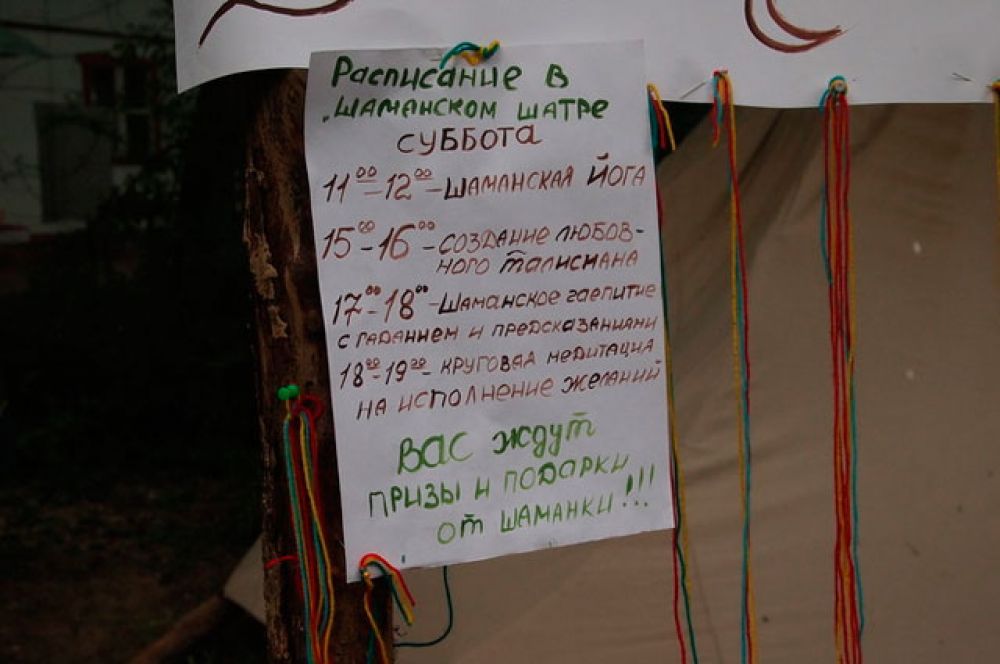 Расписание в
шаманском шатре
суббота
11⁰⁰-12⁰⁰-шаманская йога
15⁰⁰-16⁰⁰-создание любов-
ного талисмана
17⁰⁰-18⁰⁰-шаманское чаепитие
с гаданием и предсказаниями
18⁰⁰-19⁰⁰-круговая медитация
на исполнение желаний
Вас ждут
призы и подарки
от шаманки!!!